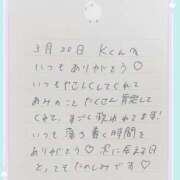 3月20日 Kくんへ
いつもありがとう♡
いつもやさしくしてくれて
あみのことたくさん肯定して
くれて、すごく救われてます!
いつも落ち着く時間を
ありがとう♡次に会える日
とってもたのしみです♡